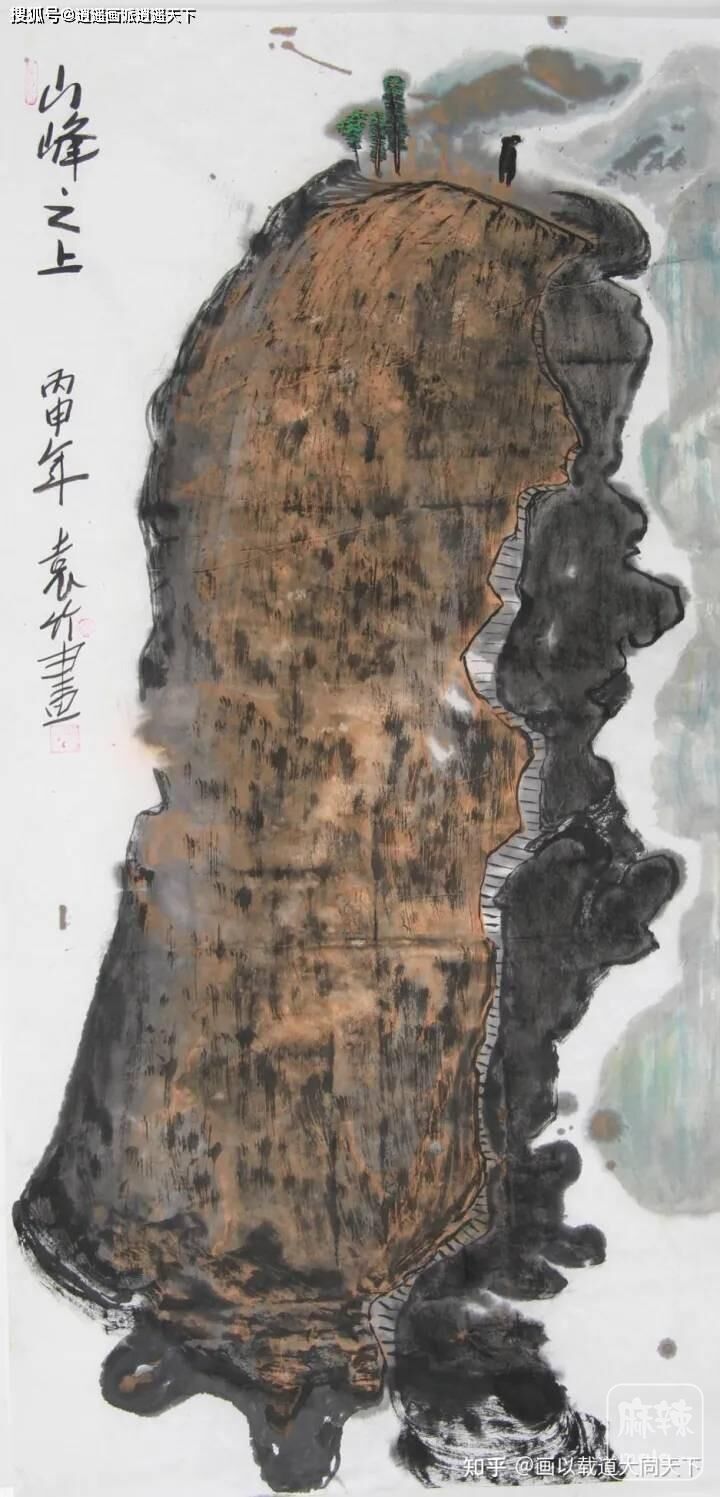 搜狐号@逍遥画派逍遥天下
山峰之上
丙申年
袁竹画
麻辣
mala
知乎 @画以载道大同天下